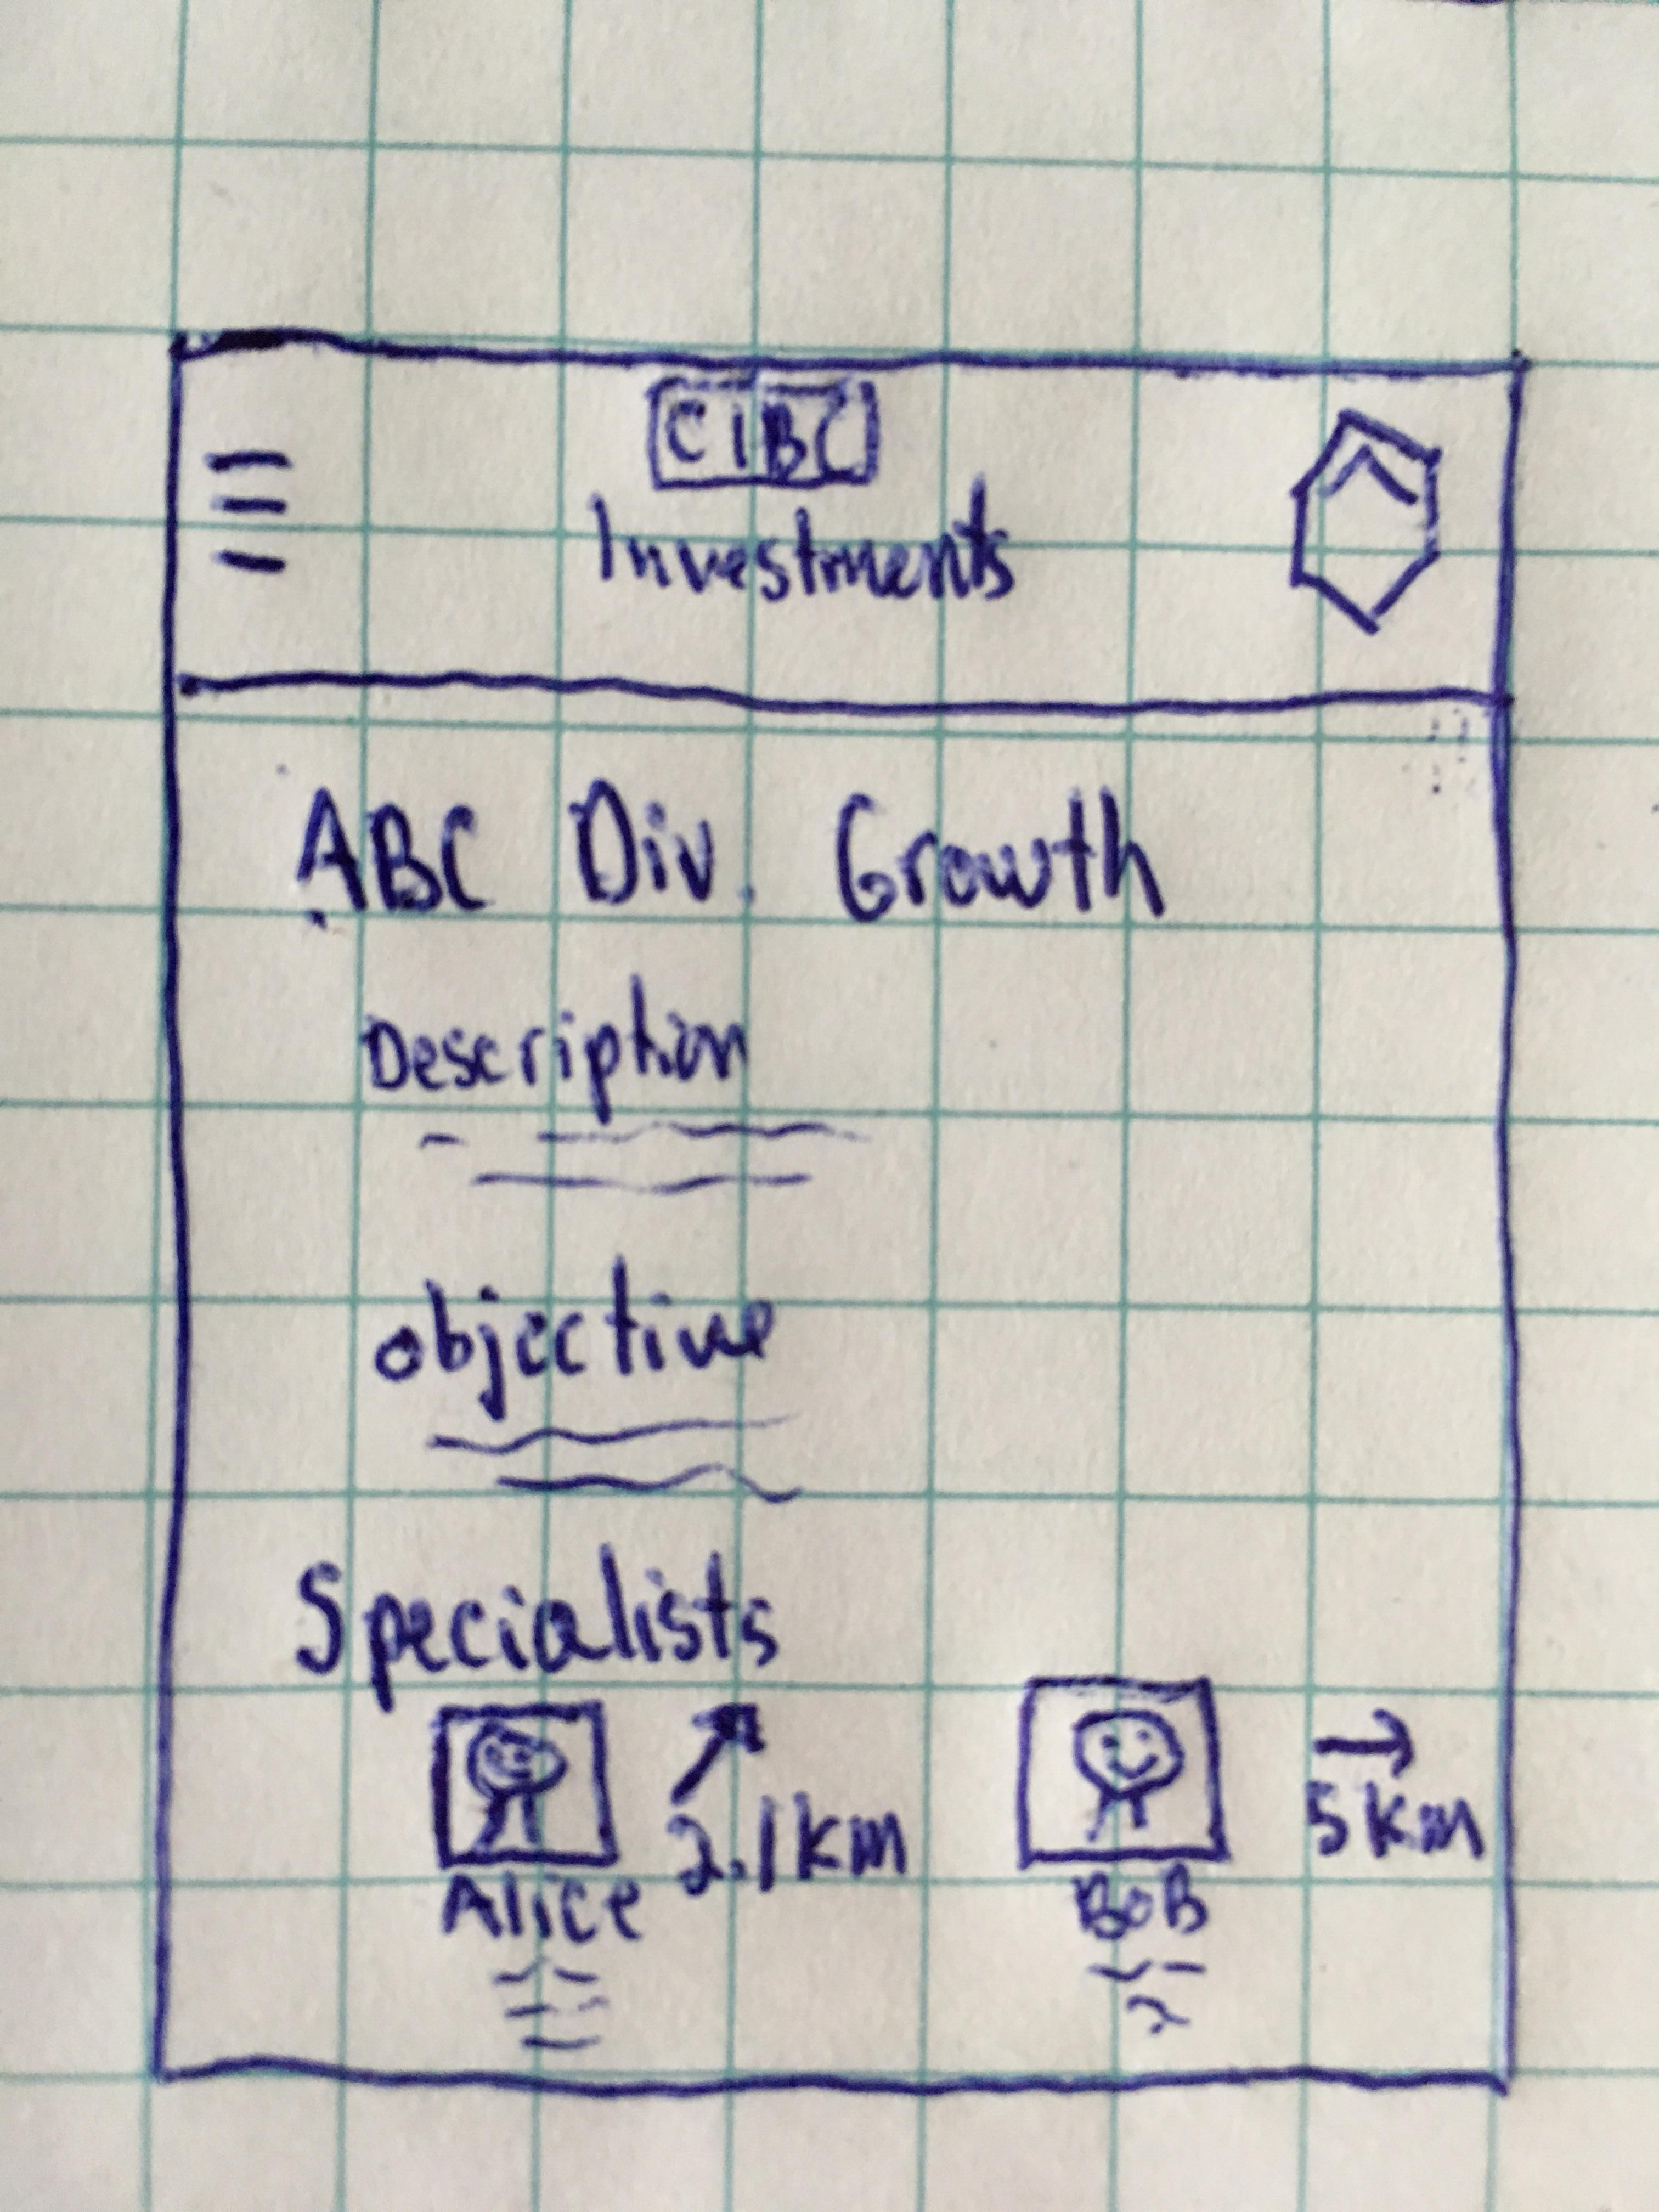 CIBC
Investments
ABC Div. Growth
Description
objective
Specialists
2.1km
5 km
Alice
BoB